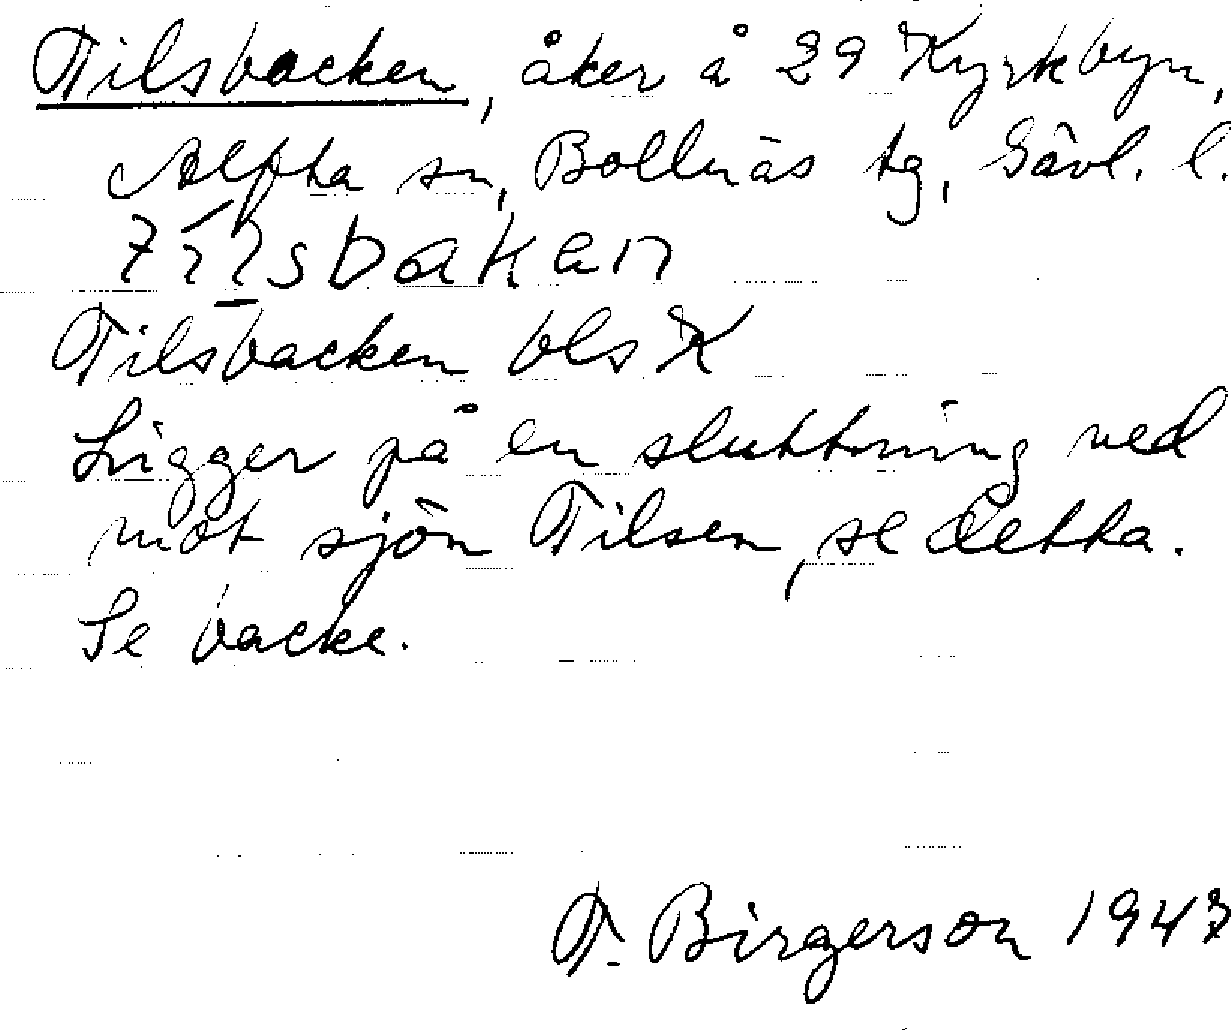 Tilsbacken, åker å 29 Kyrkbyn,
Alfta sn, Bollnäs tg, Gävl. l.
Tilsbacken bls K
Ligger på en sluttning ned
mot sjön Tilsen, se detta.
Se backe.
T. Birgerson 1943